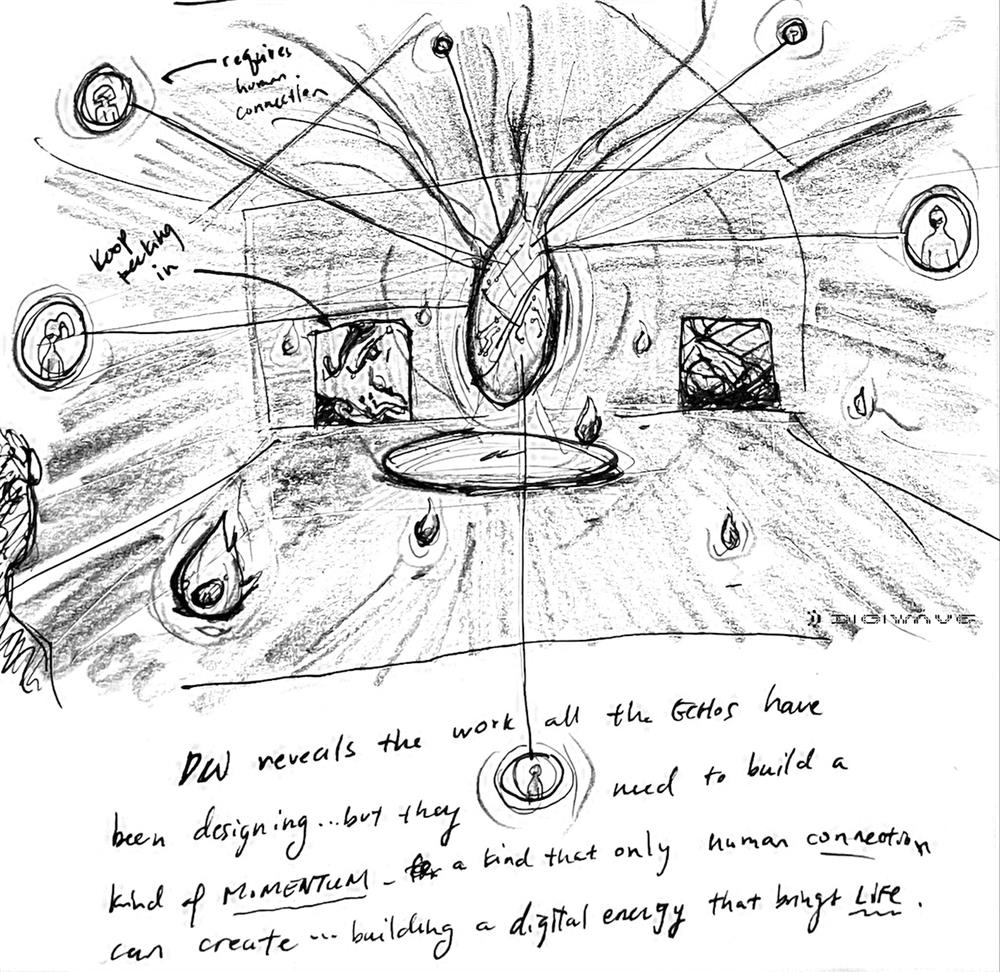 requires
human
connection
Koop
in
DIGIWAVE
DW reveals the work all the ECHOs have
been designing...but they need to build a
kind of MOMENTUM - a kind that only human connection
can create... building a digital energy that brings LIFE.